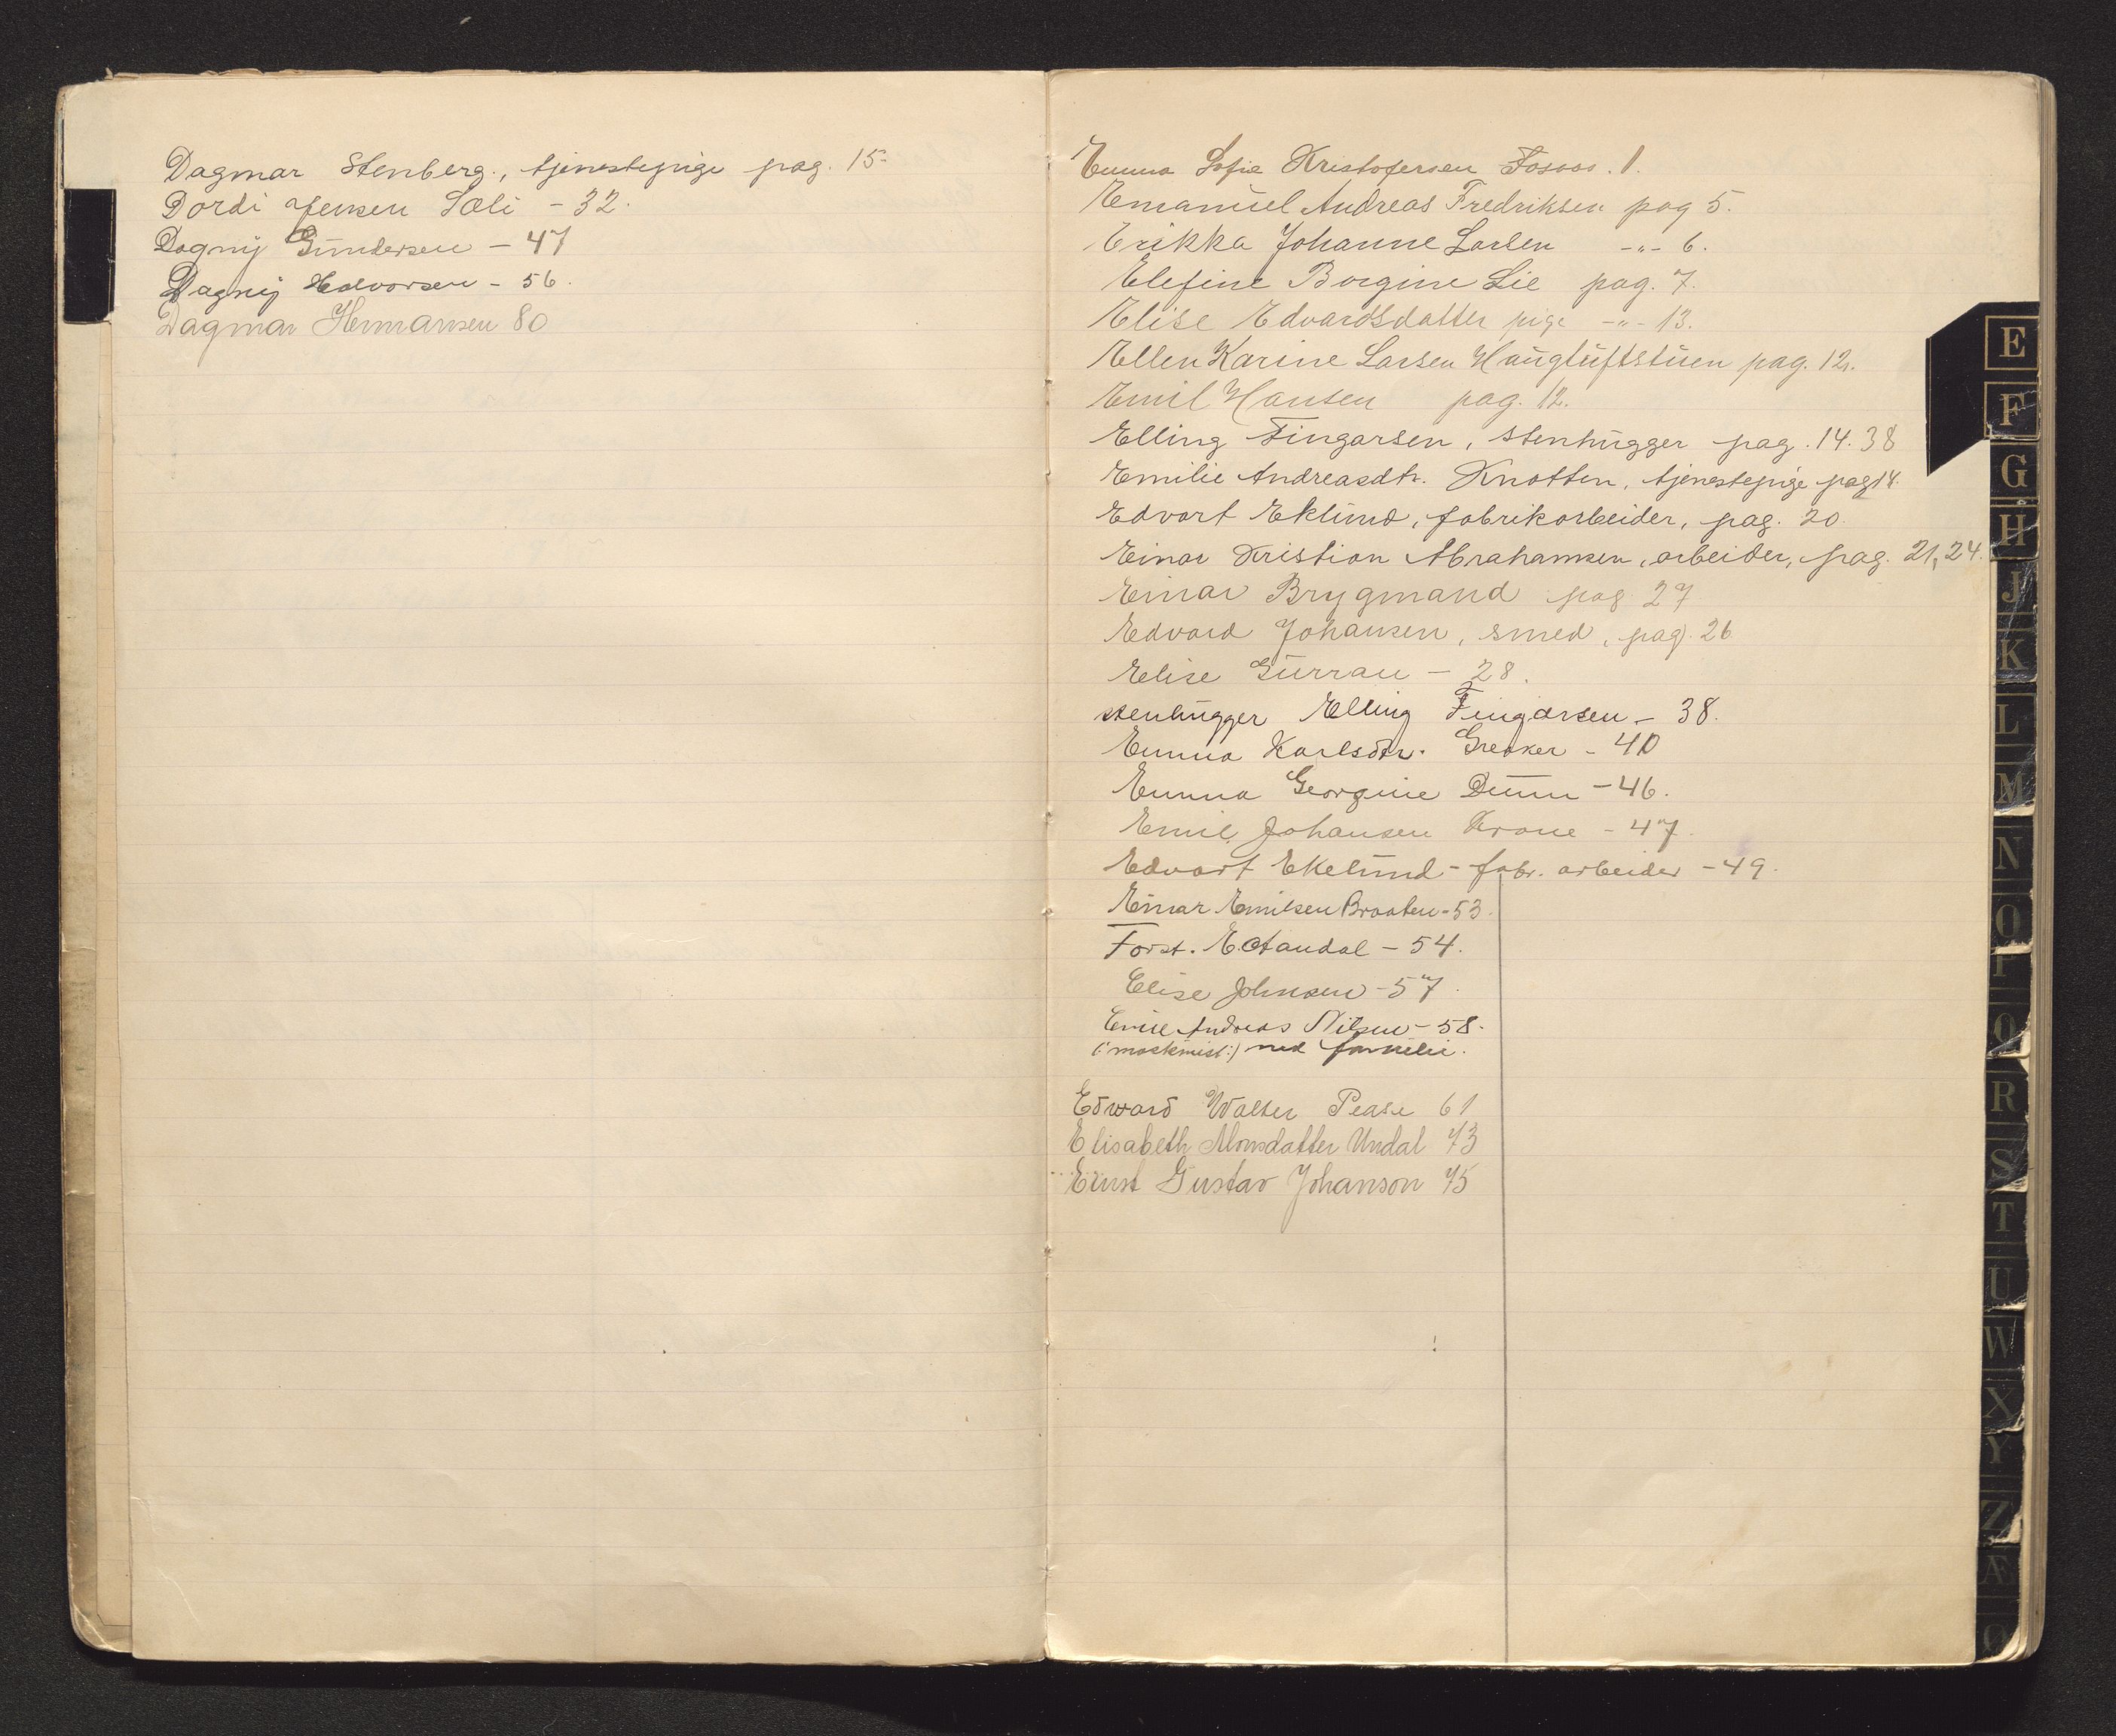 Dagmar Stenberg., tjenestepige pag. 15.
Dordi Jensen Sæli - 32.
Dagny Gundersen - 47
Dagny Halvorsen - 56.
Dagmar Hermansen 80
Emma Sofie Kristofersen Fosaas. 1.
Emanuel Andreas Fredriksen pag 5.
Erikka Johanne Larsen -"- 6.
Elefine Borgine Lie pag. 7.
Elise Edvardsdatter pige -"- 13.
Ellen Karine Larsen Haugluftstuen pag. 12.
Emil Hansen pag. 12.
Elling Fingarsen, stenhugger pag. 14. 38
Emilie Andreasdtr. Knotten, tjenestepige pag 14.
Edvart Eklund, fabrikarbeider, pag. 20.
Einar Kristian Abrahamsen, arbeider, pag. 21, 24.
Einar Brygmand pag 27
Edvard Johansen, smed, pag. 26
Elise Gurrau - 28.
stenhugger Elling Fingarsen - 38.
Emma Karlsdtr. Greaker - 40
Emma Georgine Dunn - 46.
Emil Johansen Krone - 47.
Edvart Ekelund - fabr. arbeider - 49.
Einar Emilsen Braaten - 53.
Forst. E. Aandal - 54.
Elise Johnsen - 57.
Emil Andreas Nilsen - 58.
(: maskinist :) med familie.
Edward Walter Pease 61
Elisabeth Monsdatter Undal 73
Ernst Gustav Johanson 75
E
F
G
H
J
K
L
M
N
O
P
Q
R
S
T
U
W
X
Y
Z
Æ
Ø